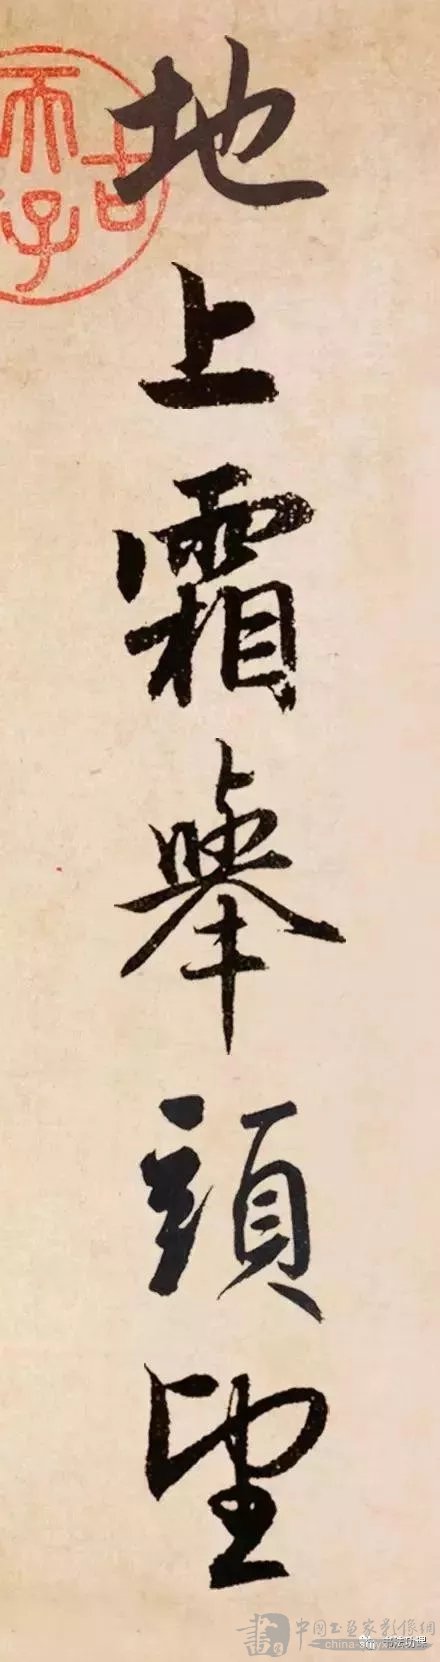 地上霜舉頭望
天子
古
中国书画家影像网